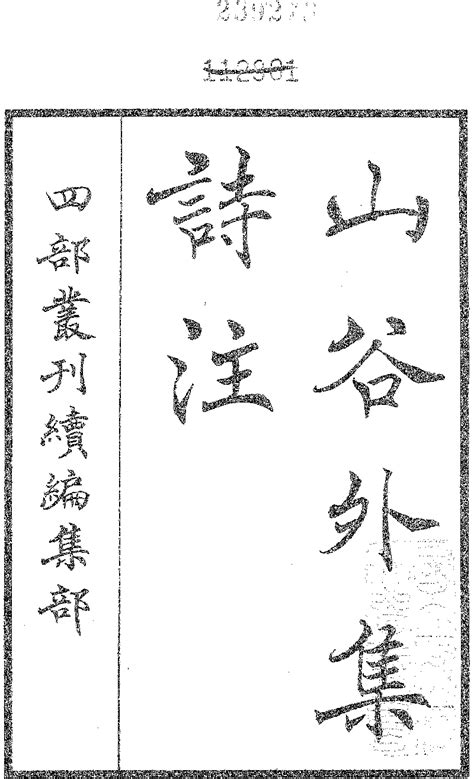 112901
山谷外集
詩注
四部叢刊續編集部